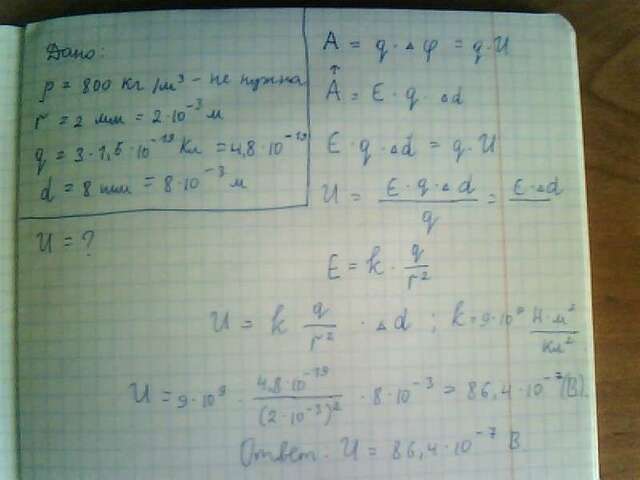 Дано:
ρ = 800 кг/м³ - не нужна
r = 2 мм = 2·10⁻³ м
q = 3·1,6·10⁻¹⁹ Кл = 4,8·10⁻¹⁹
d = 8 мм = 8·10⁻³ м
U = ?
A = q·Δφ = q·U
↑
A = E·q Δd
E·q·Δd = q·U
U = E·q·Δd / q = E·Δd
E = k · q / r²
U = k q / r² · Δd ; k = 9·10⁹ Н·м² / Кл²
U = 9·10⁹ · 4,8·10⁻¹⁹ / (2·10⁻³)² · 8·10⁻³ = 86,4·10⁻⁷ (В).
Ответ: U = 86,4·10⁻⁷ В